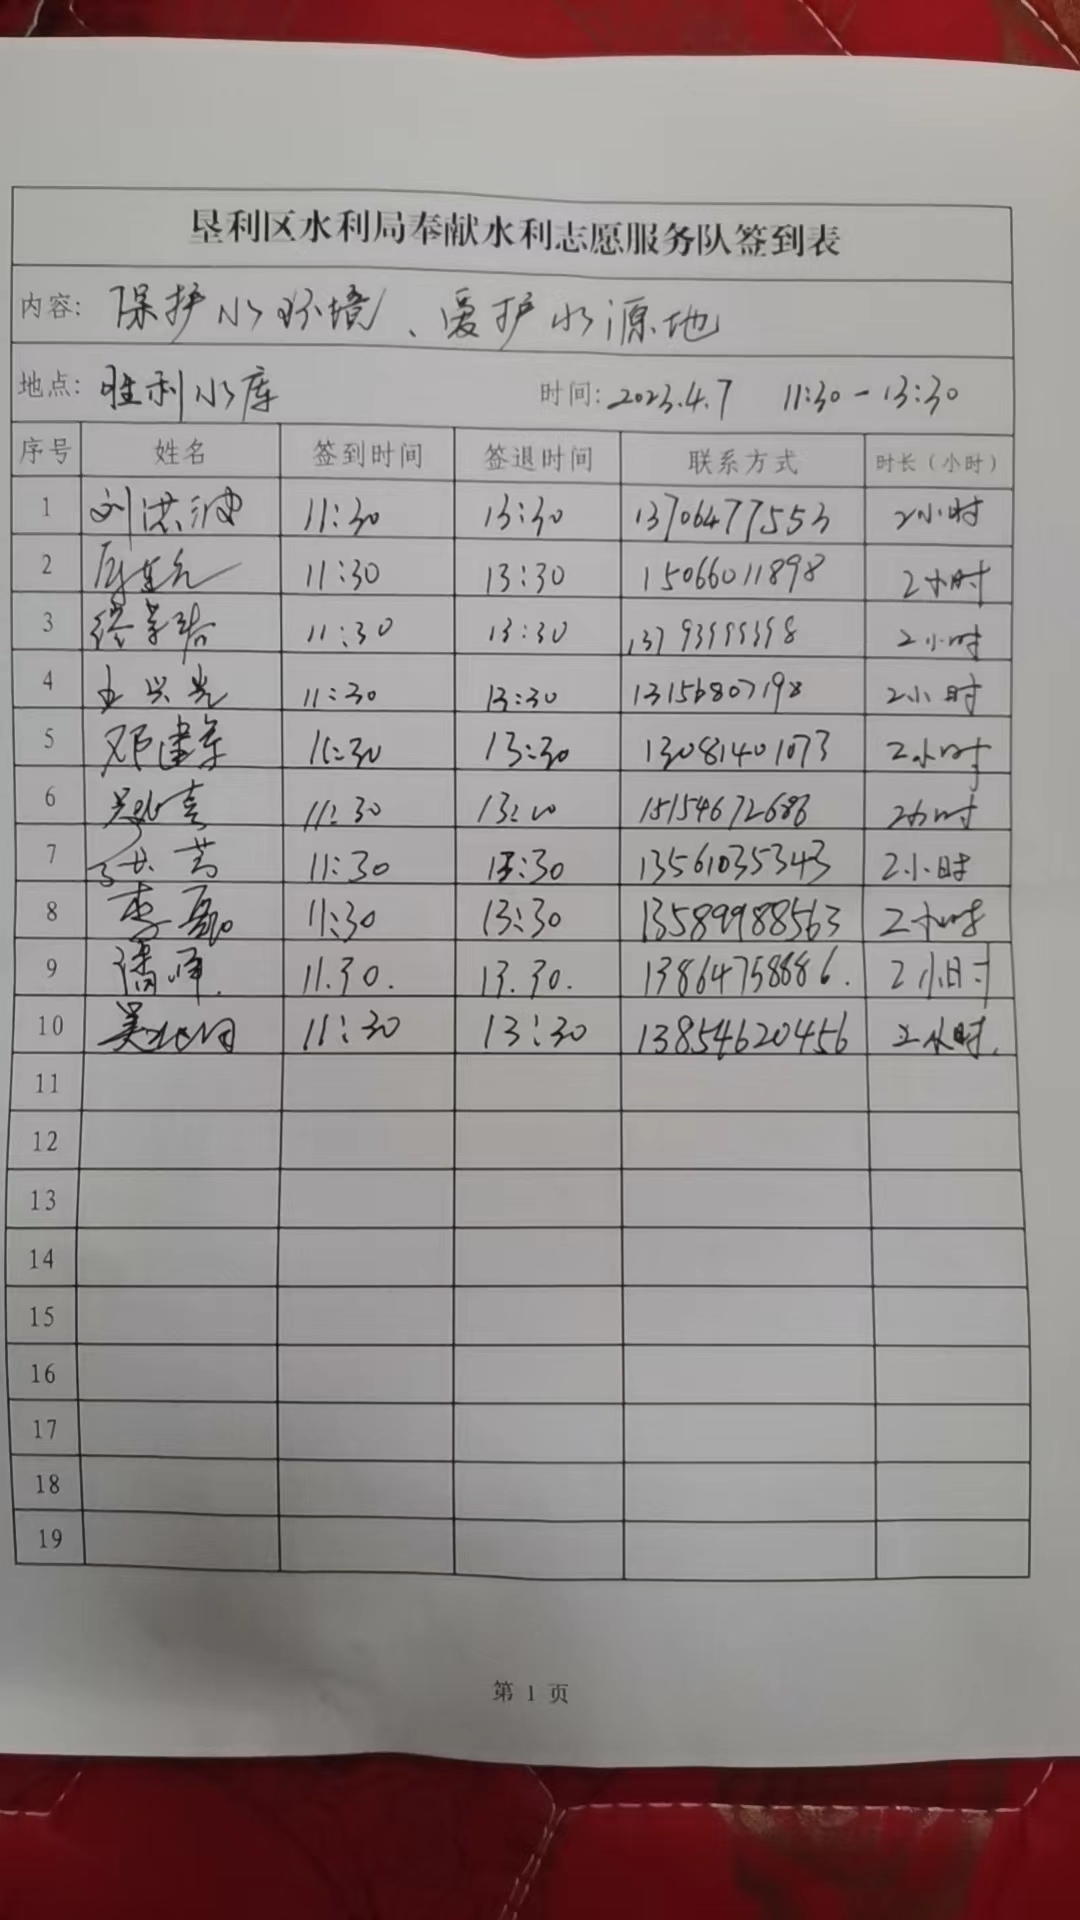 垦利区水利局奉献水利志愿服务队签到表
内容: 保护水环境、爱护水源地
地点: 胜利水库 时间: 2023.4.7 11:30-13:30
序号 姓名 签到时间 签退时间 联系方式 时长(小时)
1 刘洪波 11:30 13:30 13706477553 2小时
2 11:30 13:30 15066011898 2小时
3 11:30 13:30 2小时
4 王兴光 11:30 13:30 13156807198 2小时
5 邓建军 11:30 13:30 13081401073 2小时
6 11:30 2小时
7 11:30 13:30 13561035343 2小时
8 李 11:30 13:30 13589988563 2小时
9 潘 11.30. 13.30. 2小时
10 吴 11:30 13:30 13854620456 2小时.
11
12
13
14
15
16
17
18
19
第 1 页